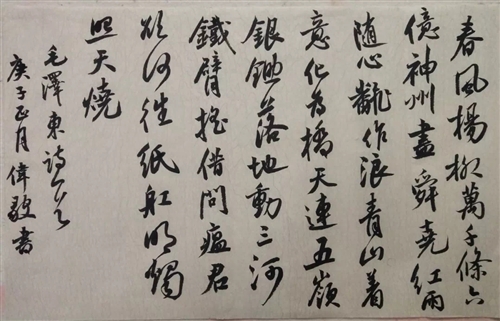 春風楊柳萬千條六
億神州盡舜堯紅雨
隨心飜作浪青山着
意化為橋天連五嶺
銀鋤落地動三河
鐵臂搖借問瘟君
欲何徃紙舡明燭
照天燒
毛澤東詩一首
庚子正月偉書